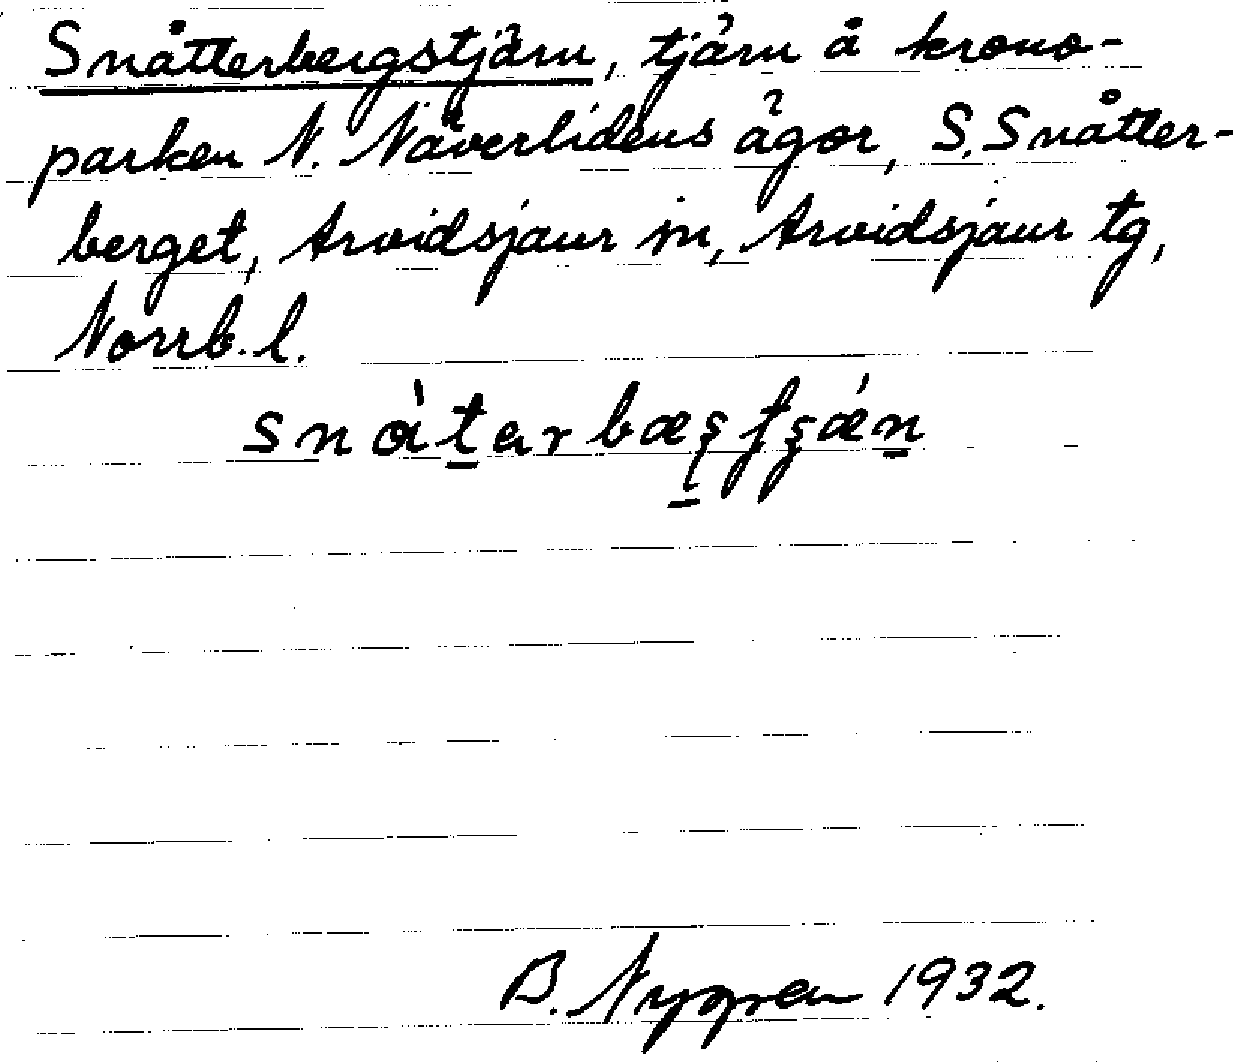 Snåtterbergstjärn, tjärn å krono-
parken N. Näverlidens ägor, S. Snåtter-
berget, Arvidsjaur sn, Arvidsjaur tg,
Norrb. l.
B. Nygren 1932.